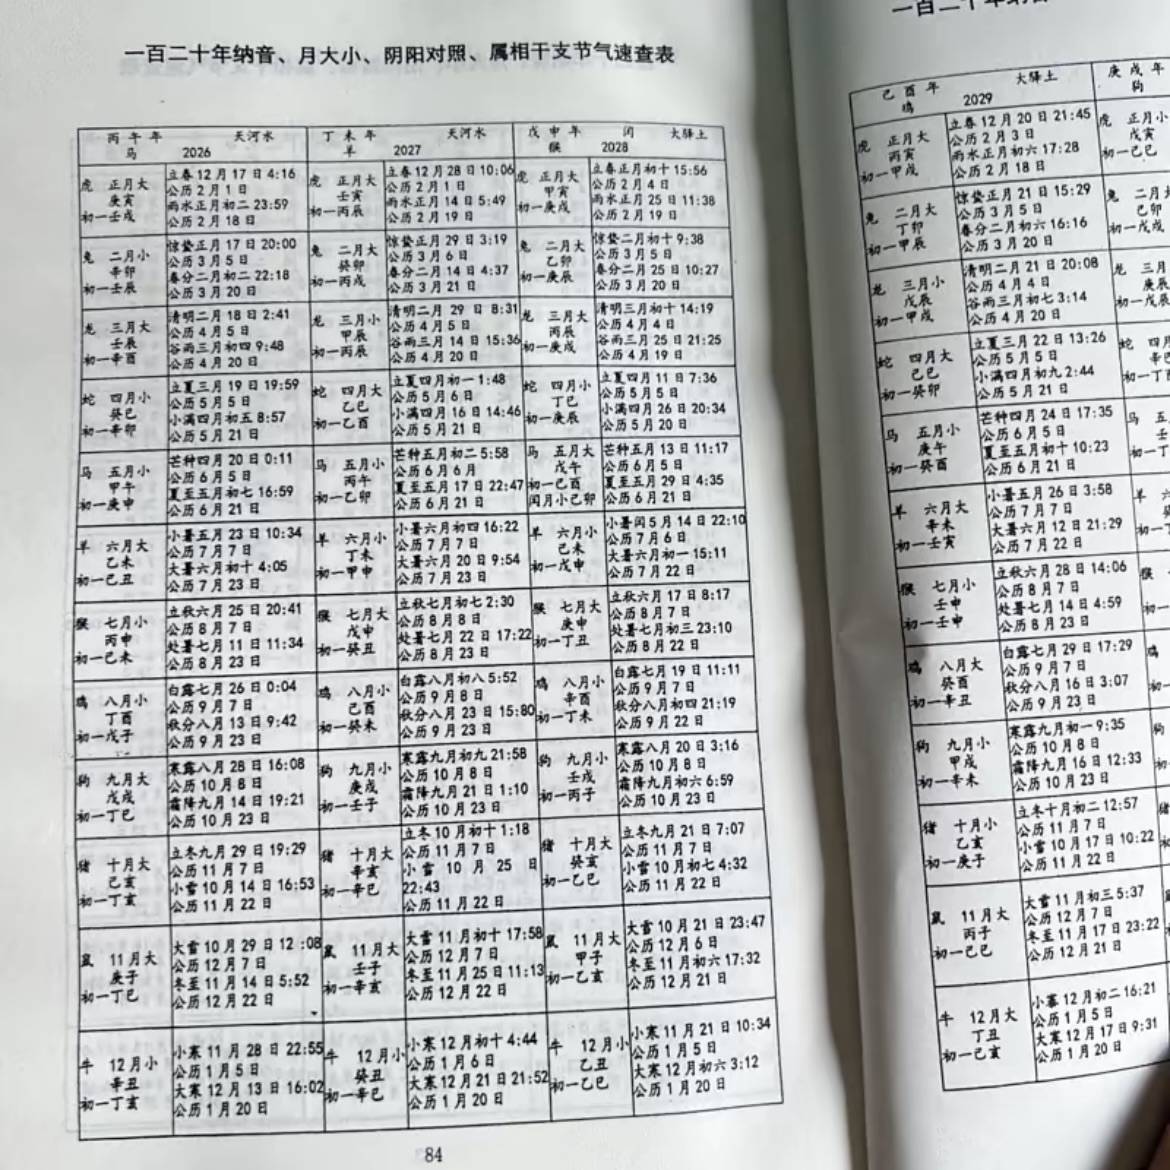 一百二十年纳音、月大小、阴阳对照、属相干支节气速查表
丙午年 天河水
马 2026
虎 正月大
庚寅
初一壬戌
立春12月17日4:16
公历2月1日
雨水正月初二23:59
公历2月18日
兔 二月小
辛卯
初一壬辰
惊蛰正月17日20:00
公历3月5日
春分二月初二22:18
公历3月20日
龙 三月大
壬辰
初一辛酉
清明二月18日2:41
公历4月5日
谷雨三月初四9:48
公历4月20日
蛇 四月小
癸巳
初一辛卯
立夏三月19日19:59
公历5月5日
小满四月初五8:57
公历5月21日
马 五月小
甲午
初一庚申
芒种四月20日0:11
公历6月5日
夏至五月初七16:59
公历6月21日
羊 六月大
乙未
初一己丑
小暑五月23日10:34
公历7月7日
大暑六月初十4:05
公历7月23日
猴 七月小
丙申
初一己未
立秋六月25日20:41
公历8月7日
处暑七月11日11:34
公历8月23日
鸡 八月小
丁酉
初一戊子
白露七月26日0:04
公历9月7日
秋分八月13日9:42
公历9月23日
狗 九月大
戊戌
初一丁巳
寒露八月28日16:08
公历10月8日
霜降九月14日19:21
公历10月23日
猪 十月大
己亥
初一丁亥
立冬九月29日19:29
公历11月7日
小雪10月14日16:53
公历11月22日
鼠 11月大
庚子
初一丁巳
大雪10月29日12:08
公历12月7日
冬至11月14日5:52
公历12月22日
牛 12月小
辛丑
初一丁亥
小寒11月28日22:55
公历1月5日
大寒12月13日16:02
公历1月20日
丁未年 天河水
羊 2027
虎 正月大
壬寅
初一丙辰
立春12月28日10:06
公历2月1日
雨水正月14日5:49
公历2月19日
兔 二月大
癸卯
初一丙戌
惊蛰正月29日3:19
公历3月6日
春分二月14日4:37
公历3月21日
龙 三月小
甲辰
初一丙辰
清明二月29日8:31
公历4月5日
谷雨三月14日15:36
公历4月20日
蛇 四月大
乙巳
初一乙酉
立夏四月初一1:48
公历5月6日
小满四月16日14:46
公历5月21日
马 五月小
丙午
初一乙卯
芒种五月初二5:58
公历6月6月
夏至五月17日22:47
公历6月21日
羊 六月小
丁未
初一甲申
小暑六月初四16:22
公历7月7日
大暑六月20日9:54
公历7月23日
猴 七月大
戊申
初一癸丑
立秋七月初七2:30
公历8月8日
处暑七月22日17:22
公历8月23日
鸡 八月小
己酉
初一癸未
白露八月初八5:52
公历9月8日
秋分八月23日15:80
公历9月23日
狗 九月小
庚戌
初一壬子
寒露九月初九21:58
公历10月8日
霜降九月21日1:10
公历10月23日
猪 十月大
辛亥
初一辛巳
立冬10月初十1:18
公历11月7日
小雪10月25日
22:43
公历11月22日
鼠 11月大
壬子
初一辛亥
大雪11月初十17:58
公历12月7日
冬至11月25日11:13
公历12月22日
牛 12月小
癸丑
初一辛巳
小寒12月初十4:44
公历1月6日
大寒12月21日21:52
公历1月20日
戊申年 闰 大驿土
猴 2028
虎 正月大
甲寅
初一庚戌
立春正月初十15:56
公历2月4日
雨水正月25日11:38
公历2月19日
兔 二月大
乙卯
初一庚辰
惊蛰二月初十9:38
公历3月5日
春分二月25日10:27
公历3月20日
龙 三月大
丙辰
初一庚戌
清明三月初十14:19
公历4月4日
谷雨三月25日21:25
公历4月19日
蛇 四月小
丁巳
初一庚辰
立夏四月11日7:36
公历5月5日
小满四月26日20:34
公历5月20日
马 五月大
戊午
初一己酉
闰月小己卯
芒种五月13日11:17
公历6月5日
夏至五月29日4:35
公历6月21日
羊 六月小
己未
初一戊申
小暑闰5月14日22:10
公历7月6日
大暑六月初一15:11
公历7月22日
猴 七月大
庚申
初一丁丑
立秋六月17日8:17
公历8月7日
处暑七月初三23:10
公历8月22日
鸡 八月小
辛酉
初一丁未
白露七月19日11:11
公历9月7日
秋分八月初四21:19
公历9月22日
狗 九月小
壬戌
初一丙子
寒露八月20日3:16
公历10月8日
霜降九月初六6:59
公历10月23日
猪 十月大
癸亥
初一乙巳
立冬九月21日7:07
公历11月7日
小雪10月初七4:32
公历11月22日
鼠 11月大
甲子
初一乙亥
大雪10月21日23:47
公历12月6日
冬至11月初六17:32
公历12月21日
牛 12月小
乙丑
初一乙巳
小寒11月21日10:34
公历1月5日
大寒12月初六3:12
公历1月20日
84
己酉年 大驿土
鸡 2029
虎 正月大
丙寅
初一甲戌
立春12月20日21:45
公历2月3日
雨水正月初六17:28
公历2月18日
兔 二月大
丁卯
初一甲辰
惊蛰正月21日15:29
公历3月5日
春分二月初六16:16
公历3月20日
龙 三月小
戊辰
初一甲戌
清明二月21日20:08
公历4月4日
谷雨三月初七3:14
公历4月20日
蛇 四月大
己巳
初一癸卯
立夏三月22日13:26
公历5月5日
小满四月初九2:44
公历5月21日
马 五月小
庚午
初一癸酉
芒种四月24日17:35
公历6月5日
夏至五月初十10:23
公历6月21日
羊 六月大
辛未
初一壬寅
小暑五月26日3:58
公历7月7日
大暑六月12日21:29
公历7月22日
猴 七月小
壬申
初一壬申
立秋六月28日14:06
公历8月7日
处暑七月14日4:59
公历8月23日
鸡 八月大
癸酉
初一辛丑
白露七月29日17:29
公历9月7日
秋分八月16日3:07
公历9月23日
狗 九月小
甲戌
初一辛未
寒露九月初一9:35
公历10月8日
霜降九月16日12:33
公历10月23日
猪 十月小
乙亥
初一庚子
立冬十月初二12:57
公历11月7日
小雪10月17日10:22
公历11月22日
鼠 11月大
丙子
初一己巳
大雪11月初三5:37
公历12月7日
冬至11月17日23:22
公历12月21日
牛 12月大
丁丑
初一己亥
小寒12月初二16:21
公历1月5日
大寒12月17日9:31
公历1月20日
庚戌年
狗
虎 正月小
戊寅
初一己巳
兔 二月大
己卯
初一戊戌
龙 三月
庚辰
初一戊辰